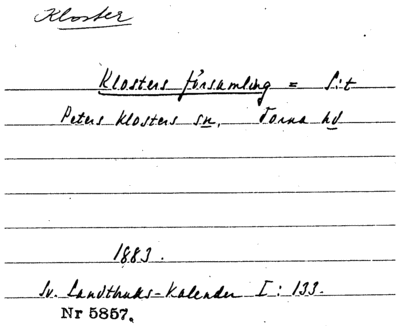 Kloster
Klosters församling = S:t
Peters Klosters sn, Torna hd
1883.
Sv. Landtbruks-Kalender I: 133.
Nr 5857.